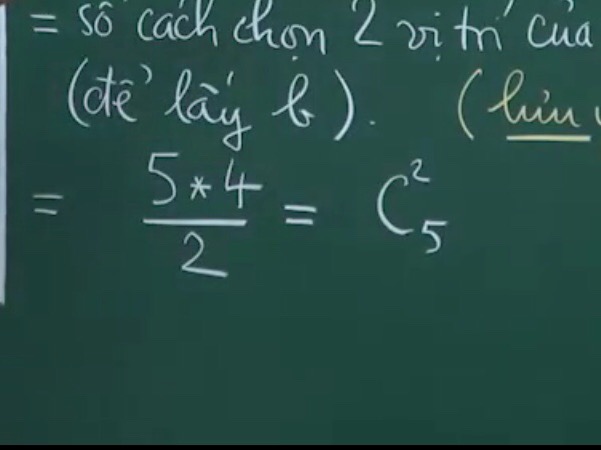 = số cách chọn 2 vị trí của
(để lấy b). (
= 5*4/2 = C²₅